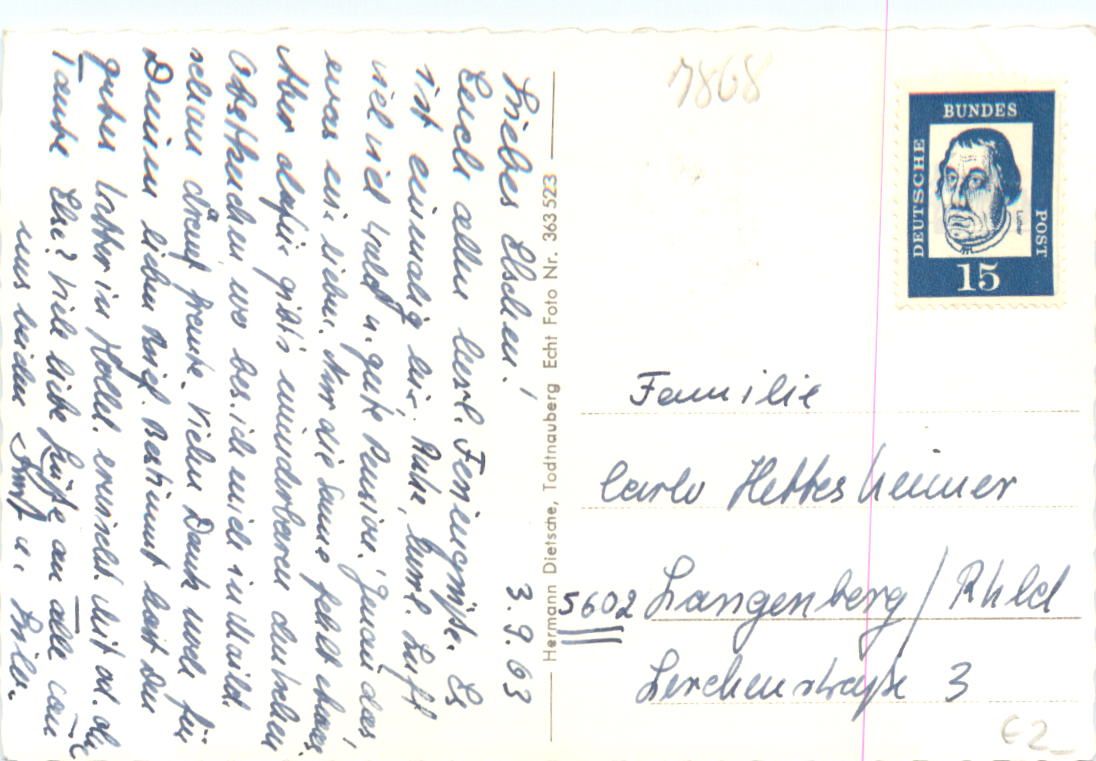 Liebes Elschen!
3.9.63
Euch allen herzl. Feriengrüße. Es
ist einmalig hier. Ruhe, herrl. Luft
viel viel Wald u. gute Pension. Junge, das
wär ein Leben. Nur die Sonne fehlt etwas,
Aber dafür gibt's wunderbaren deutschen
Obstkuchen wo bes. ich mich in Maild.
schon drauf freute. Vielen Dank noch für
Deinen lieben Brief. Bestimmt hast Du
gutes Wetter in Holld. erwischt. Mit od. ohne
Tante Ele? Viele liebe Grüße an alle von
uns beiden
u.
Hermann Dietsche, Todtnauberg Echt Foto Nr. 363 523
7868
DEUTSCHE
BUNDES
POST
Luther
15
Familie
Carlo Hettesheimer
5602 Langenberg/Rhld
Lerchenstraße 3
€2_